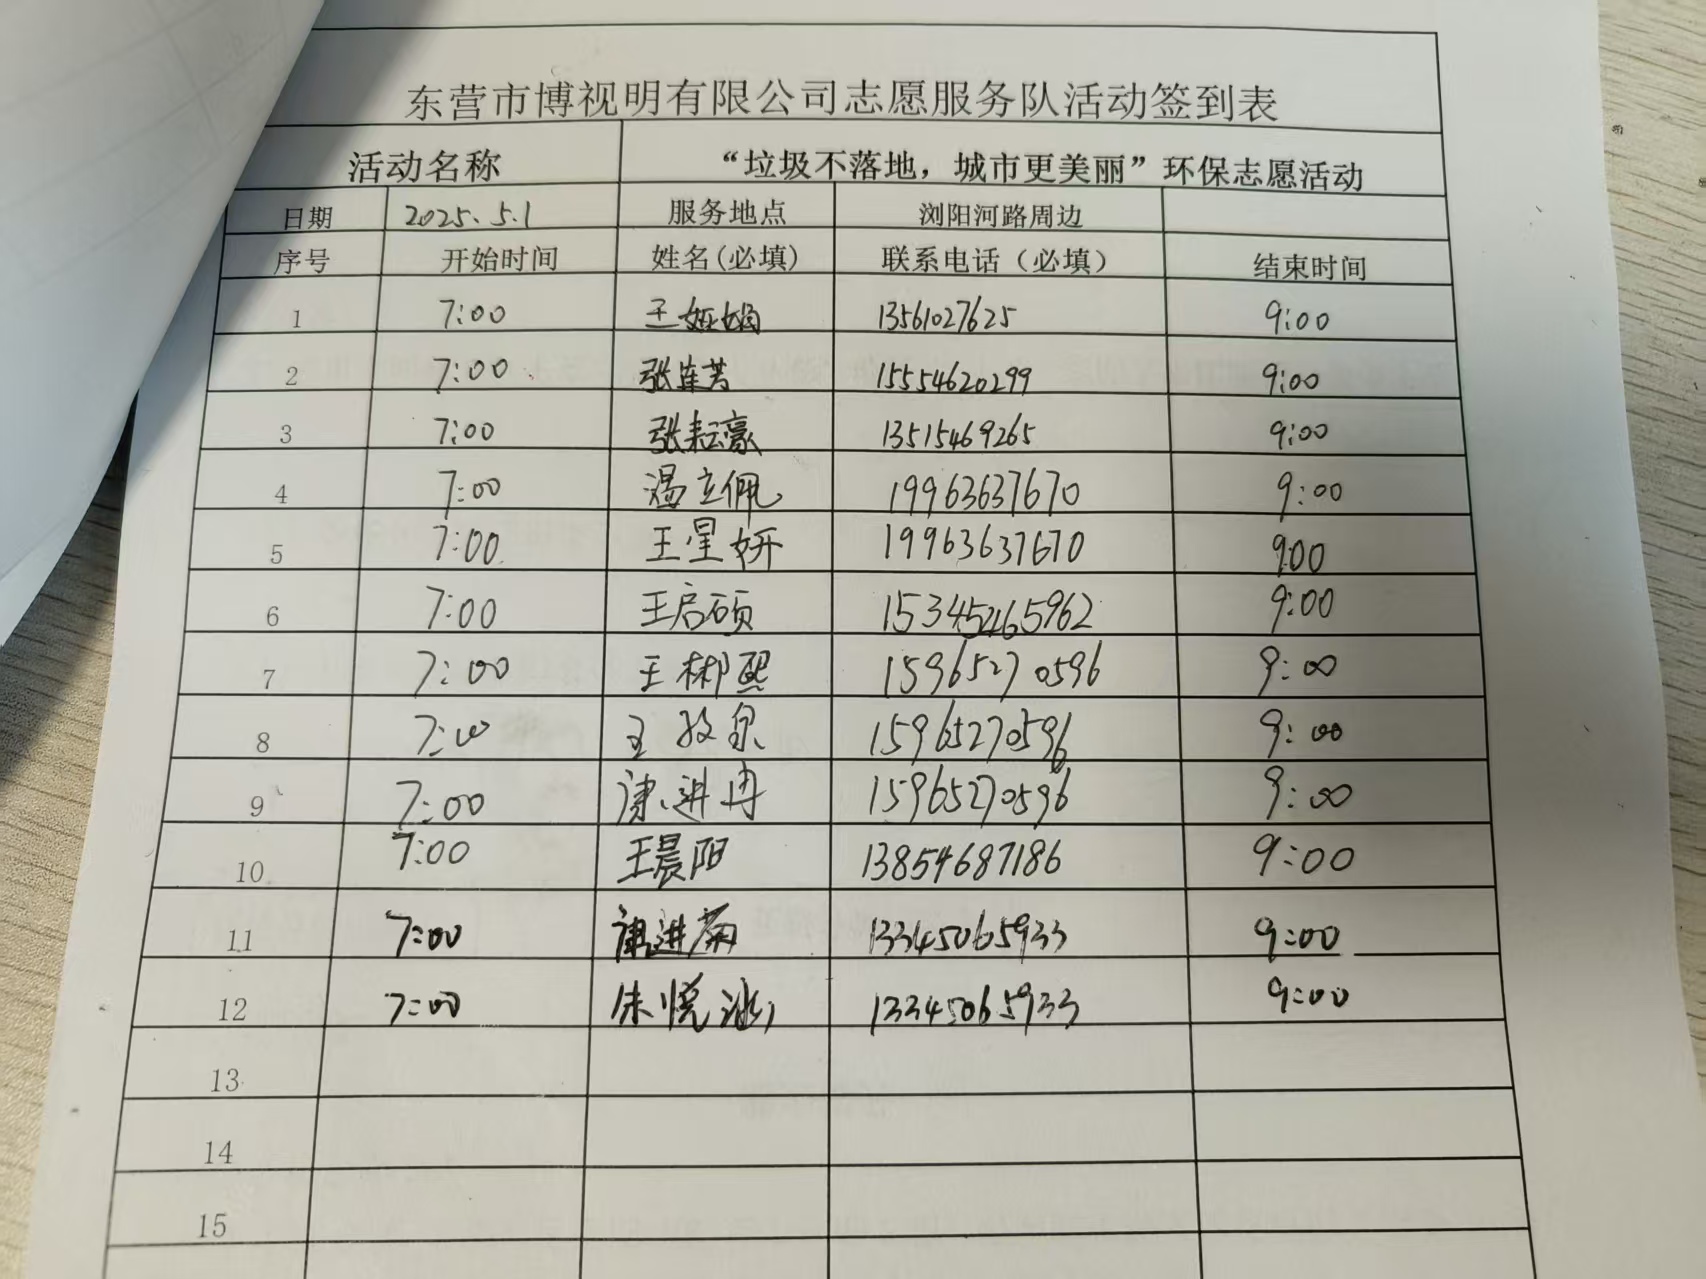 东营市博视明有限公司志愿服务队活动签到表
活动名称 “垃圾不落地，城市更美丽”环保志愿活动
日期 2025.5.1 服务地点 浏阳河路周边
序号 开始时间 姓名(必填) 联系电话（必填） 结束时间
1 7:00 王娅娟 13561027625 9:00
2 7:00 张连芳 15554620299 9:00
3 7:00 张耘豪 13515469265 9:00
4 7:00 温立佩 19963637670 9:00
5 7:00 王星妍 19963637670 9:00
6 7:00 王启硕 15345465962 9:00
7 7:00 王彬熙 15965270596 9:00
8 7:00 王 15965270596 9:00
9 7:00 15965270596 9:00
10 7:00 王晨阳 13854687186 9:00
11 7:00 13345065933 9:00
12 7:00 朱悦 13345065933 9:00
13
14
15